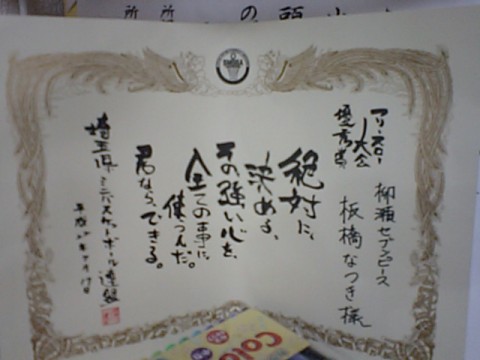 フリースロー大会
優秀賞
柳瀬セブンピース
板橋なつき様
絶対に、
決める、
その強い心を、
全ての事に
使うんだ。
君なら、できる。
埼玉県ミニバスケットボール連盟
Colo